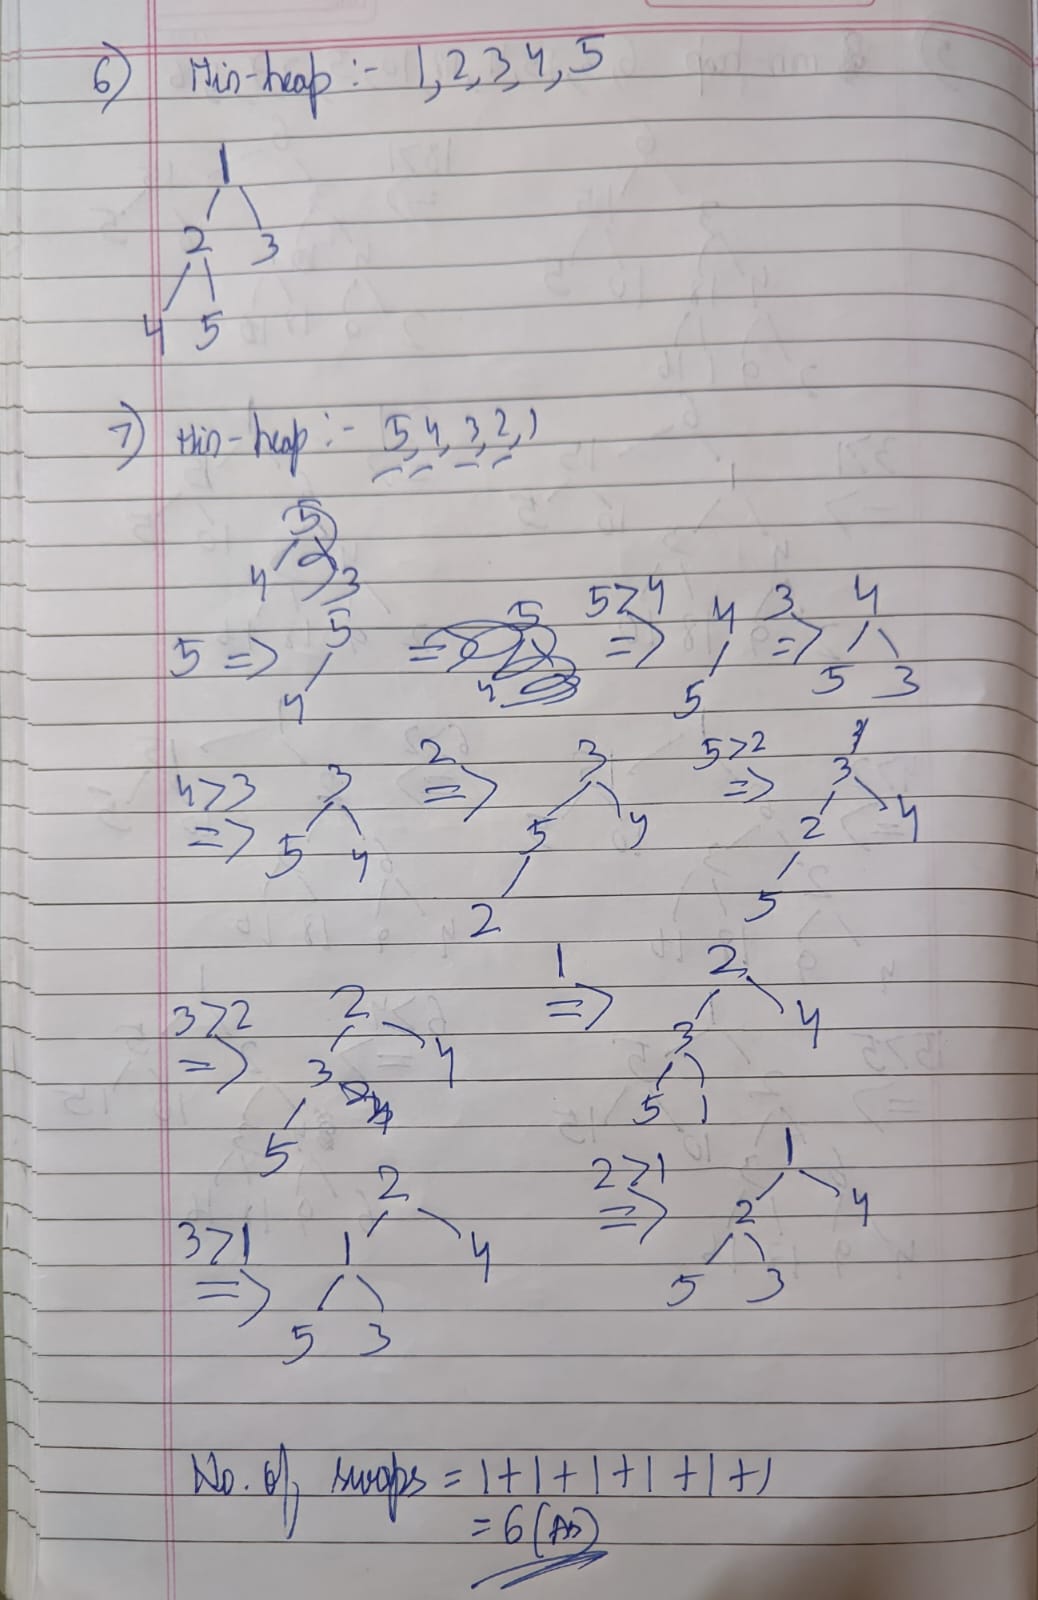 6) Min-heap :- 1, 2, 3, 4, 5
1
2 3
4 5
7) Min-heap :- 5, 4, 3, 2, 1
5
4 3
5 => 5 4 => 5 4 5>4 => 4 5 3 => 4 5 3
4>3 => 3 5 4 2 => 3 5 4 2 5>2 => 3 2 4 5
3>2 => 2 3 4 5 1 => 2 3 4 5 1
3>1 => 2 1 4 5 3 2>1 => 1 2 4 5 3
No. of swaps = 1+1+1+1+1+1
= 6 (As)